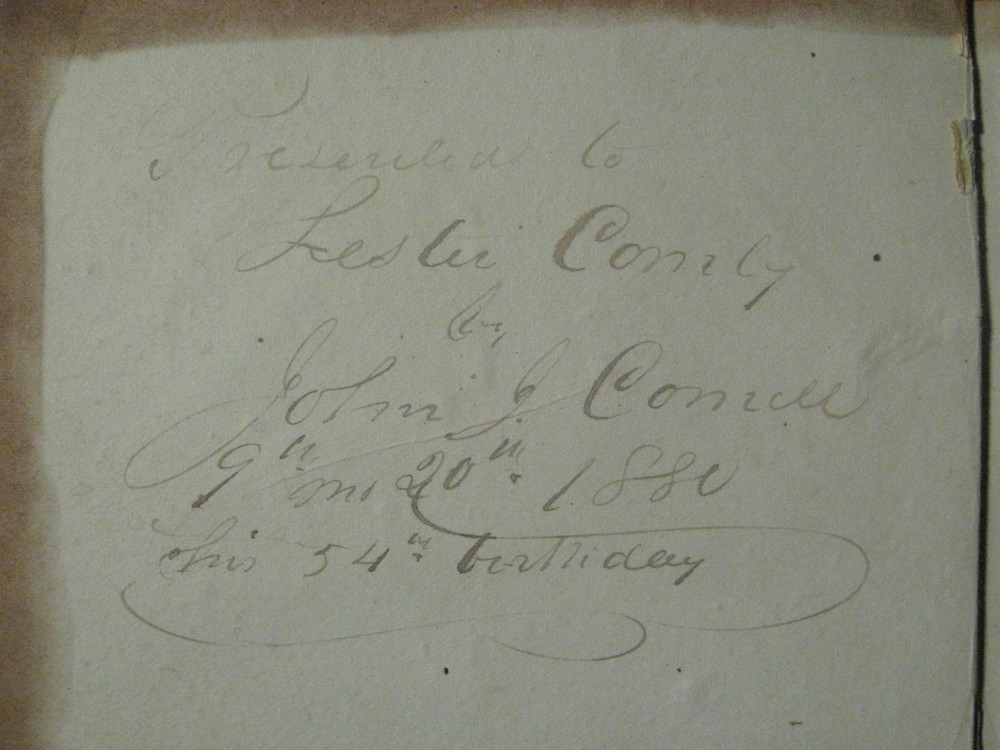 Presented to
Lester Comly
by
John J. Cornell
9th mo 20th 1880
his 54th birthday